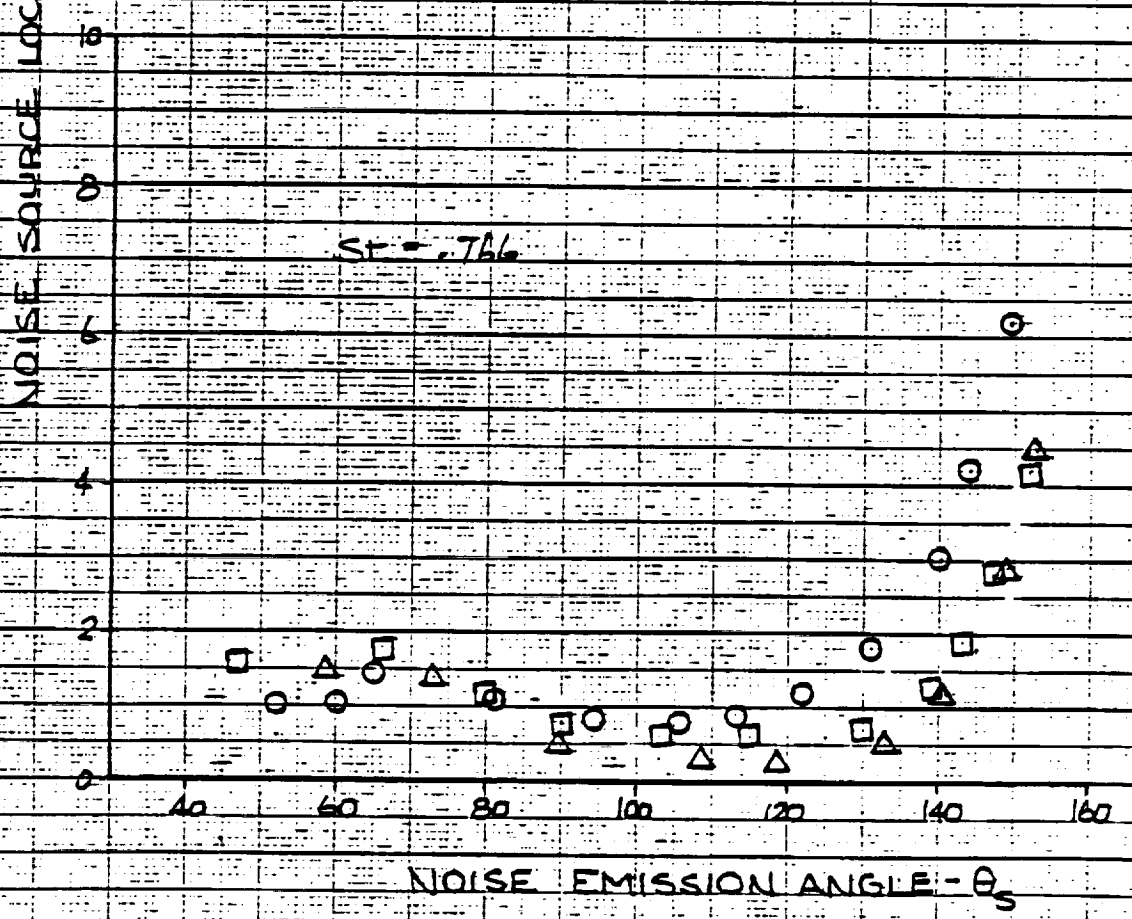 NOISE SOURCE LOC
10
8
6
4
2
0
St = .766
40 60 80 100 120 140 160
NOISE EMISSION ANGLE - θs